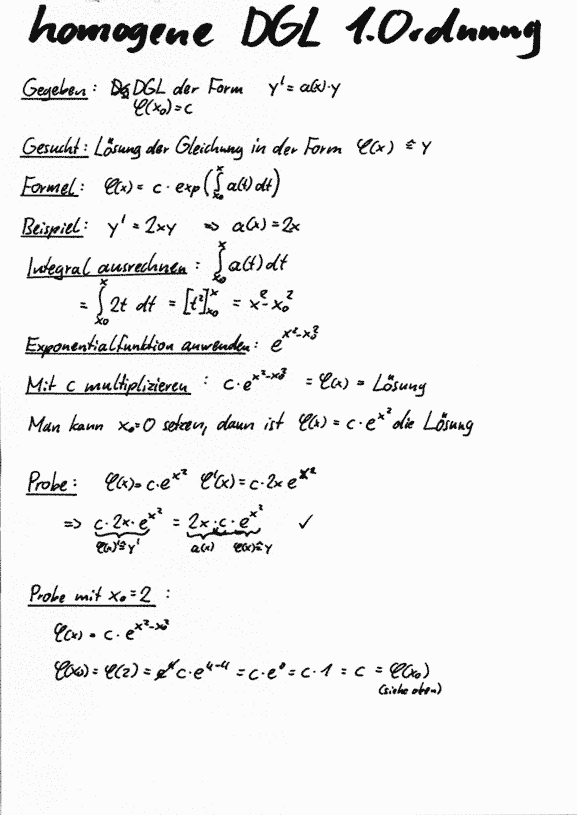 homogene DGL 1.Ordnung
Gegeben: DGL der Form y' = a(x)·y
φ(x₀)=c
Gesucht: Lösung der Gleichung in der Form φ(x) ≙ y
Formel: φ(x) = c · exp(∫ₓ₀ˣ a(t) dt)
Beispiel: y' = 2xy ⇒ a(x) = 2x
Integral ausrechnen: ∫ₓ₀ˣ a(t) dt
= ∫ₓ₀ˣ 2t dt = [t²]ₓ₀ˣ = x² - x₀²
Exponentialfunktion anwenden: e^(x²-x₀²)
Mit c multiplizieren: c·e^(x²-x₀²) = φ(x) = Lösung
Man kann x₀=0 setzen, dann ist φ(x) = c·e^(x²) die Lösung
Probe: φ(x) = c·e^(x²) φ'(x) = c·2x e^(x²)
⇒ c·2x·e^(x²) = 2x·c·e^(x²) ✓
φ(x)' ≙ y' a(x) φ(x) ≙ y
Probe mit x₀=2:
φ(x) = c·e^(x²-x₀²)
φ(x₀) = φ(2) = c·e^(4-4) = c·e⁰ = c·1 = c = φ(x₀)
(siehe oben)